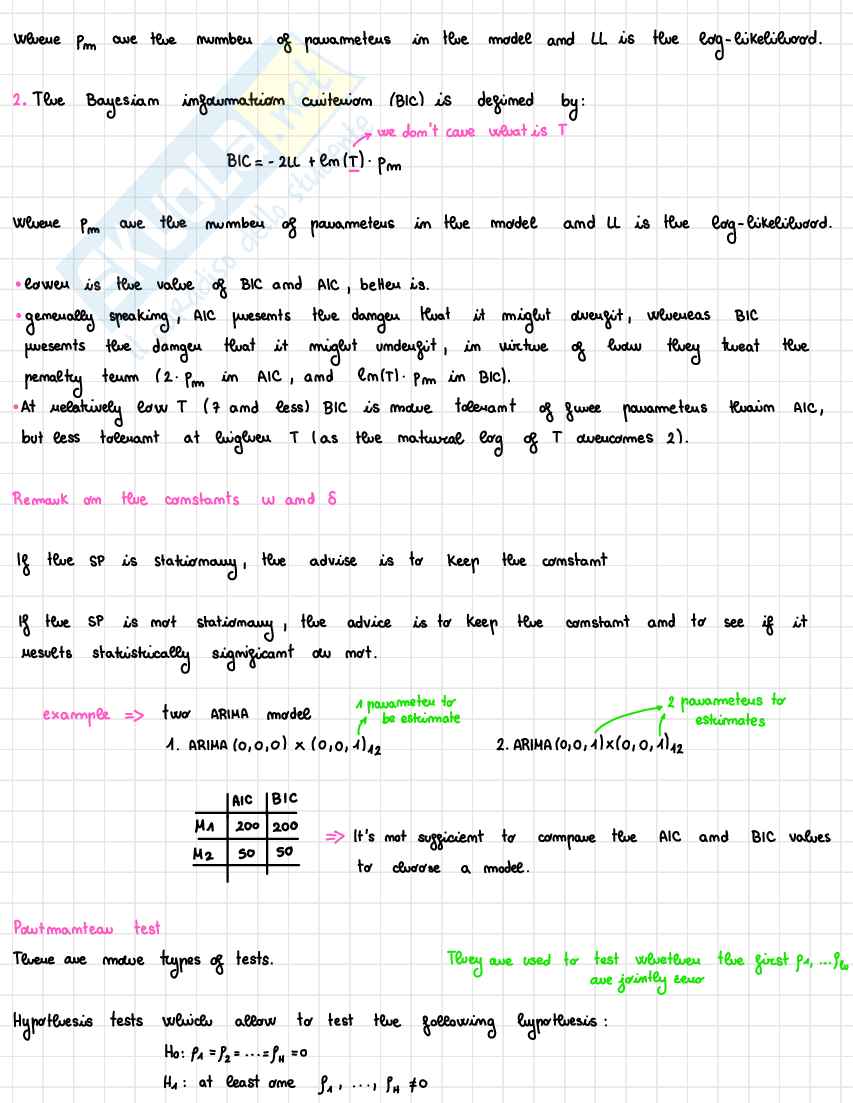 where pm are the number of parameters in the model and LL is the log-likelihood.
2. The Bayesian information criterion (BIC) is defined by:
we don't care what is T
BIC = - 2LL + ln(T) · pm
where pm are the number of parameters in the model and LL is the log-likelihood.
• lower is the value of BIC and AIC, better is.
• generally speaking, AIC presents the danger that it might overfit, whereas BIC
presents the danger that it might underfit, in virtue of how they treat the
penalty term (2· pm in AIC, and ln(T)· pm in BIC).
• At relatively low T (7 and less) BIC is more tolerant of free parameters thain AIC,
but less tolerant at higher T (as the natural log of T overcomes 2).
Remark on the constants w and δ
If the SP is stationary, the advise is to keep the constant
If the SP is not stationary, the advice is to keep the constant and to see if it
results statistically significant or not.
example => two ARIMA model
1 parameter to be estimate
2 parameters to estimates
1. ARIMA (0,0,0) x (0,0,1)12
2. ARIMA (0,0,1)x(0,0,1)12
AIC BIC
M1 200 200
M2 50 50
=> It's not sufficient to compare the AIC and BIC values
to choose a model.
Portmanteau test
There are more types of tests.
They are used to test whether the first ρ1, ...ρh
are jointly zero
Hypothesis tests which allow to test the following hypothesis:
H0: ρ1 = ρ2 = ... = ρH = 0
H1: at least one ρ1, ..., ρH ≠ 0
SKUOLA.net
il paradiso dello studente